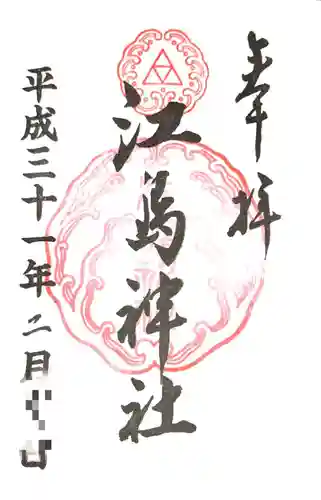 奉拝
江島神社
平成三十一年二月